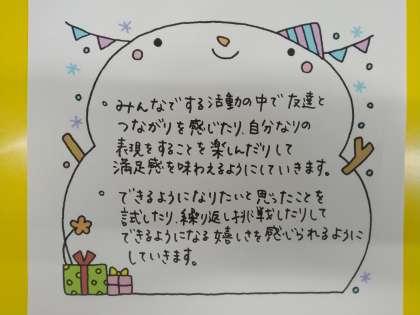 ・みんなでする活動の中で友達と
つながりを感じたり、自分なりの
表現をすることを楽しんだりして
満足感を味わえるようにしていきます。
・できるようになりたいと思ったことを
試したり、繰り返し挑戦したりして
できるようになる嬉しさを感じられるように
していきます。